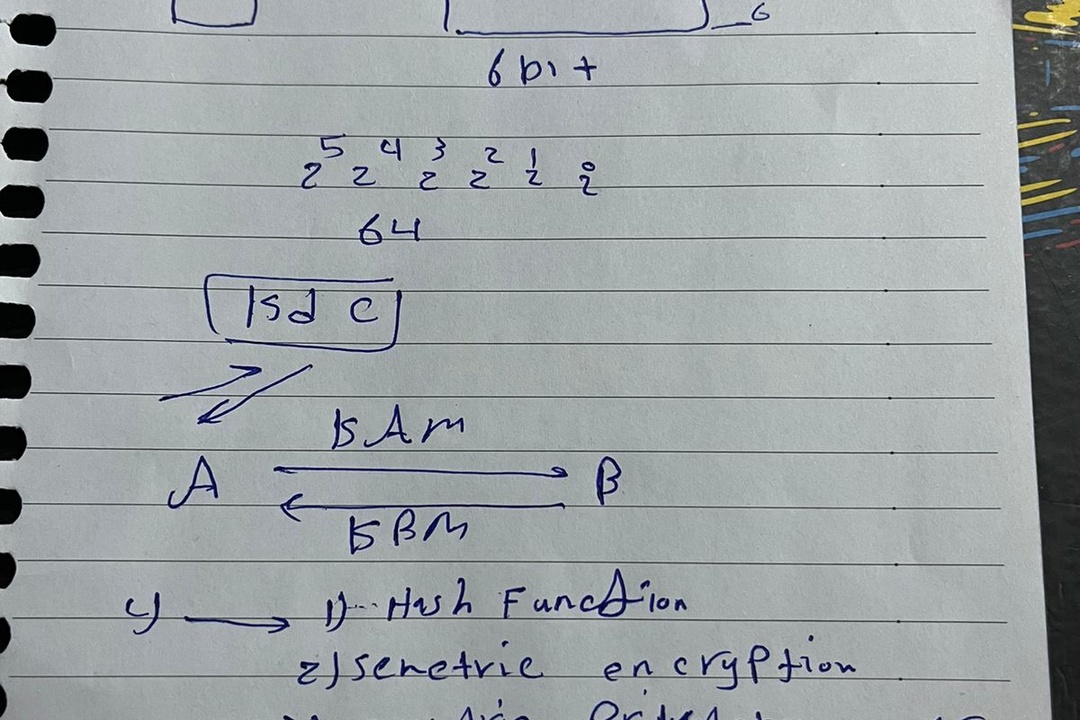 6
6 bit
2^5 2^4 2^3 2^2 2^1 2^0
64
KSAM
A B
KBM
1) Hash Function
2) semetric encryption